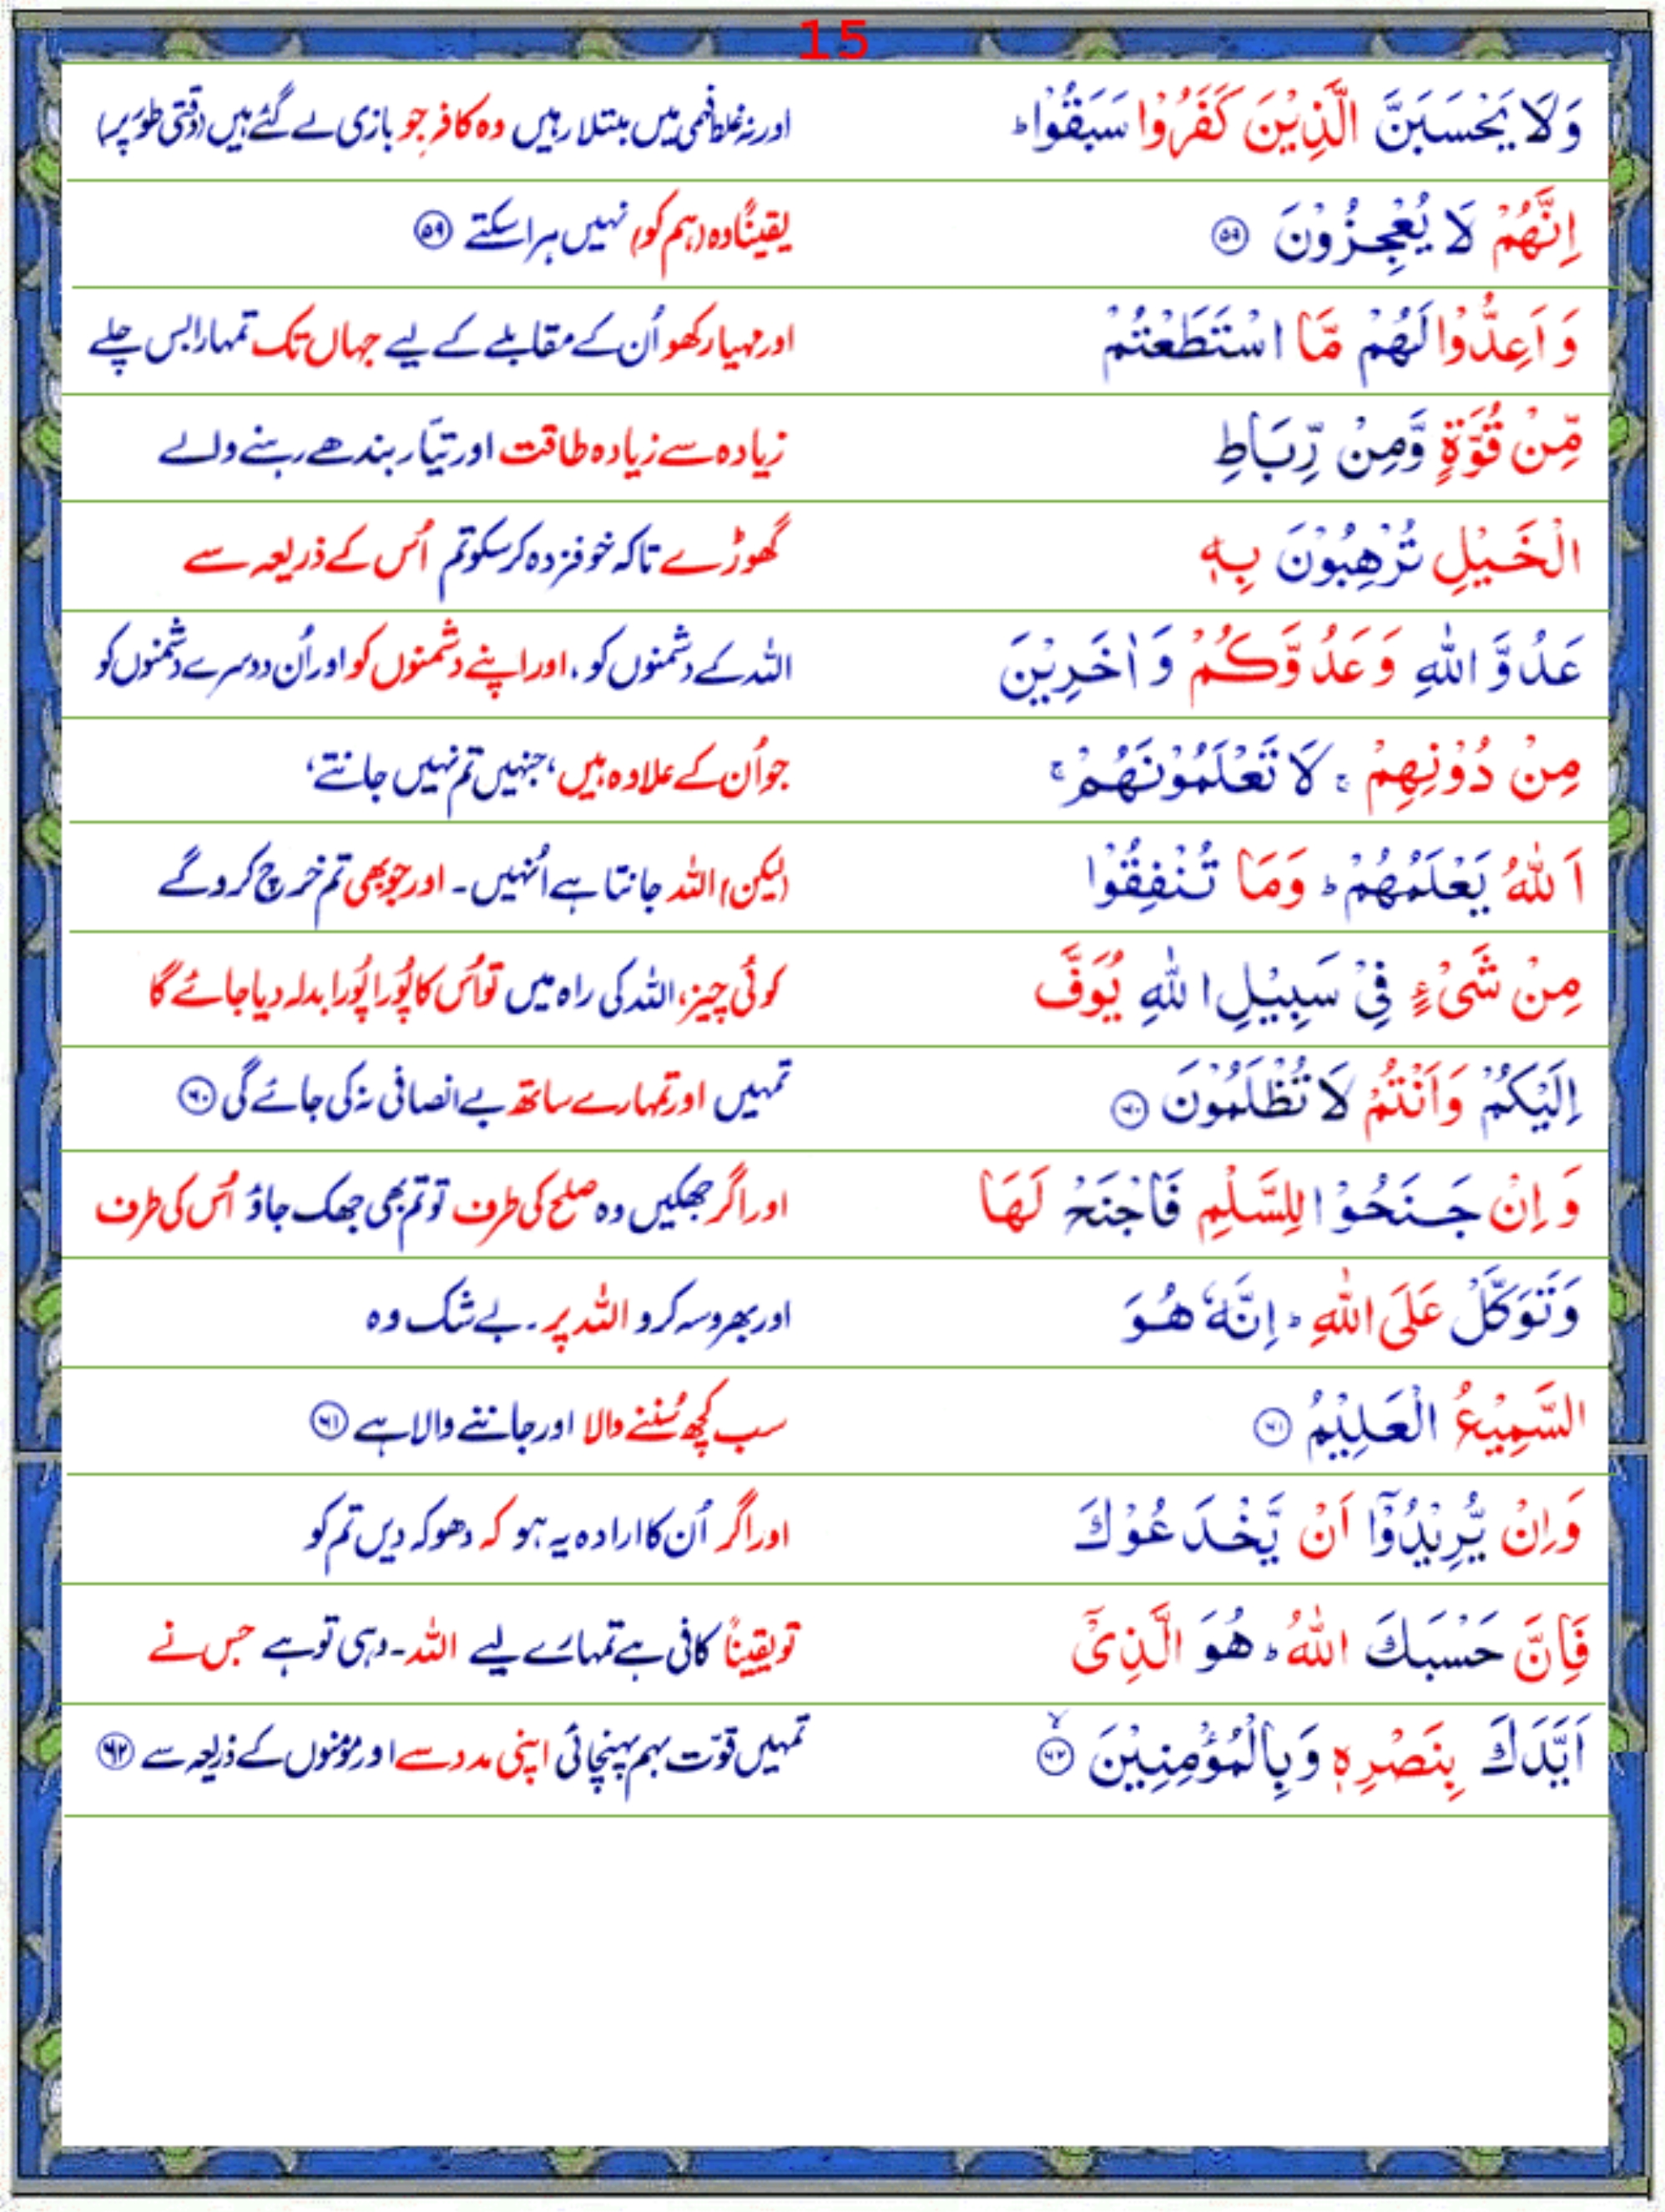 15
وَلَا يَحْسَبَنَّ الَّذِيْنَ كَفَرُوْا سَبَقُوْا ؕ اور نہ غلط فہمی میں مبتلا رہیں وہ کافر جو بازی لے گئے ہیں (وقتی طور پر)
اِنَّهُمْ لَا يُعْجِزُوْنَ ۝۵۹ یقیناً وہ (ہم کو) نہیں ہرا سکتے ۝۵۹
وَ اَعِدُّوْا لَهُمْ مَّا اسْتَطَعْتُمْ اور مہیا رکھو اُن کے مقابلے کے لیے جہاں تک تمہارا بس چلے
مِّنْ قُوَّةٍ وَّمِنْ رِّبَاطِ زیادہ سے زیادہ طاقت اور تیّار بندھے رہنے والے
الْخَيْلِ تُرْهِبُوْنَ بِهٖ گھوڑے تاکہ خوفزدہ کر سکو تم اُس کے ذریعہ سے
عَدُوَّ اللّٰهِ وَعَدُوَّكُمْ وَ اٰخَرِيْنَ اللہ کے دشمنوں کو، اور اپنے دشمنوں کو اور اُن دوسرے دشمنوں کو
مِنْ دُوْنِهِمْ ۚ لَا تَعْلَمُوْنَهُمْ ۚ جو اُن کے علاوہ ہیں، جنہیں تم نہیں جانتے،
اَللّٰهُ يَعْلَمُهُمْ ؕ وَمَا تُنْفِقُوْا (لیکن) اللہ جانتا ہے اُنہیں۔ اور جو بھی تم خرچ کرو گے
مِنْ شَىْءٍ فِىْ سَبِيْلِ اللّٰهِ يُوَفَّ کوئی چیز، اللہ کی راہ میں تو اُس کا پُورا پُورا بدلہ دیا جائے گا
اِلَيْكُمْ وَاَنْتُمْ لَا تُظْلَمُوْنَ ۝۶۰ تمہیں اور تمہارے ساتھ بے انصافی نہ کی جائے گی ۝۶۰
وَ اِنْ جَنَحُوْا لِلسَّلْمِ فَاجْنَحْ لَهَا اور اگر جھکیں وہ صلح کی طرف تو تم بھی جھک جاؤ اُس کی طرف
وَتَوَكَّلْ عَلَى اللّٰهِ ؕ اِنَّهٗ هُوَ اور بھروسہ کرو اللہ پر۔ بے شک وہ
السَّمِيْعُ الْعَلِيْمُ ۝۶۱ سب کچھ سُننے والا اور جاننے والا ہے ۝۶۱
وَاِنْ يُّرِيْدُوْۤا اَنْ يَّخْدَعُوْكَ اور اگر اُن کا ارادہ یہ ہو کہ دھوکہ دیں تم کو
فَاِنَّ حَسْبَكَ اللّٰهُ ؕ هُوَ الَّذِىْۤ تو یقیناً کافی ہے تمہارے لیے اللہ۔ وہی تو ہے جس نے
اَيَّدَكَ بِنَصْرِهٖ وَبِالْمُؤْمِنِيْنَ ۝۶۲ تمہیں قوّت بہم پہنچائی اپنی مدد سے اور مؤمنوں کے ذریعہ سے ۝۶۲